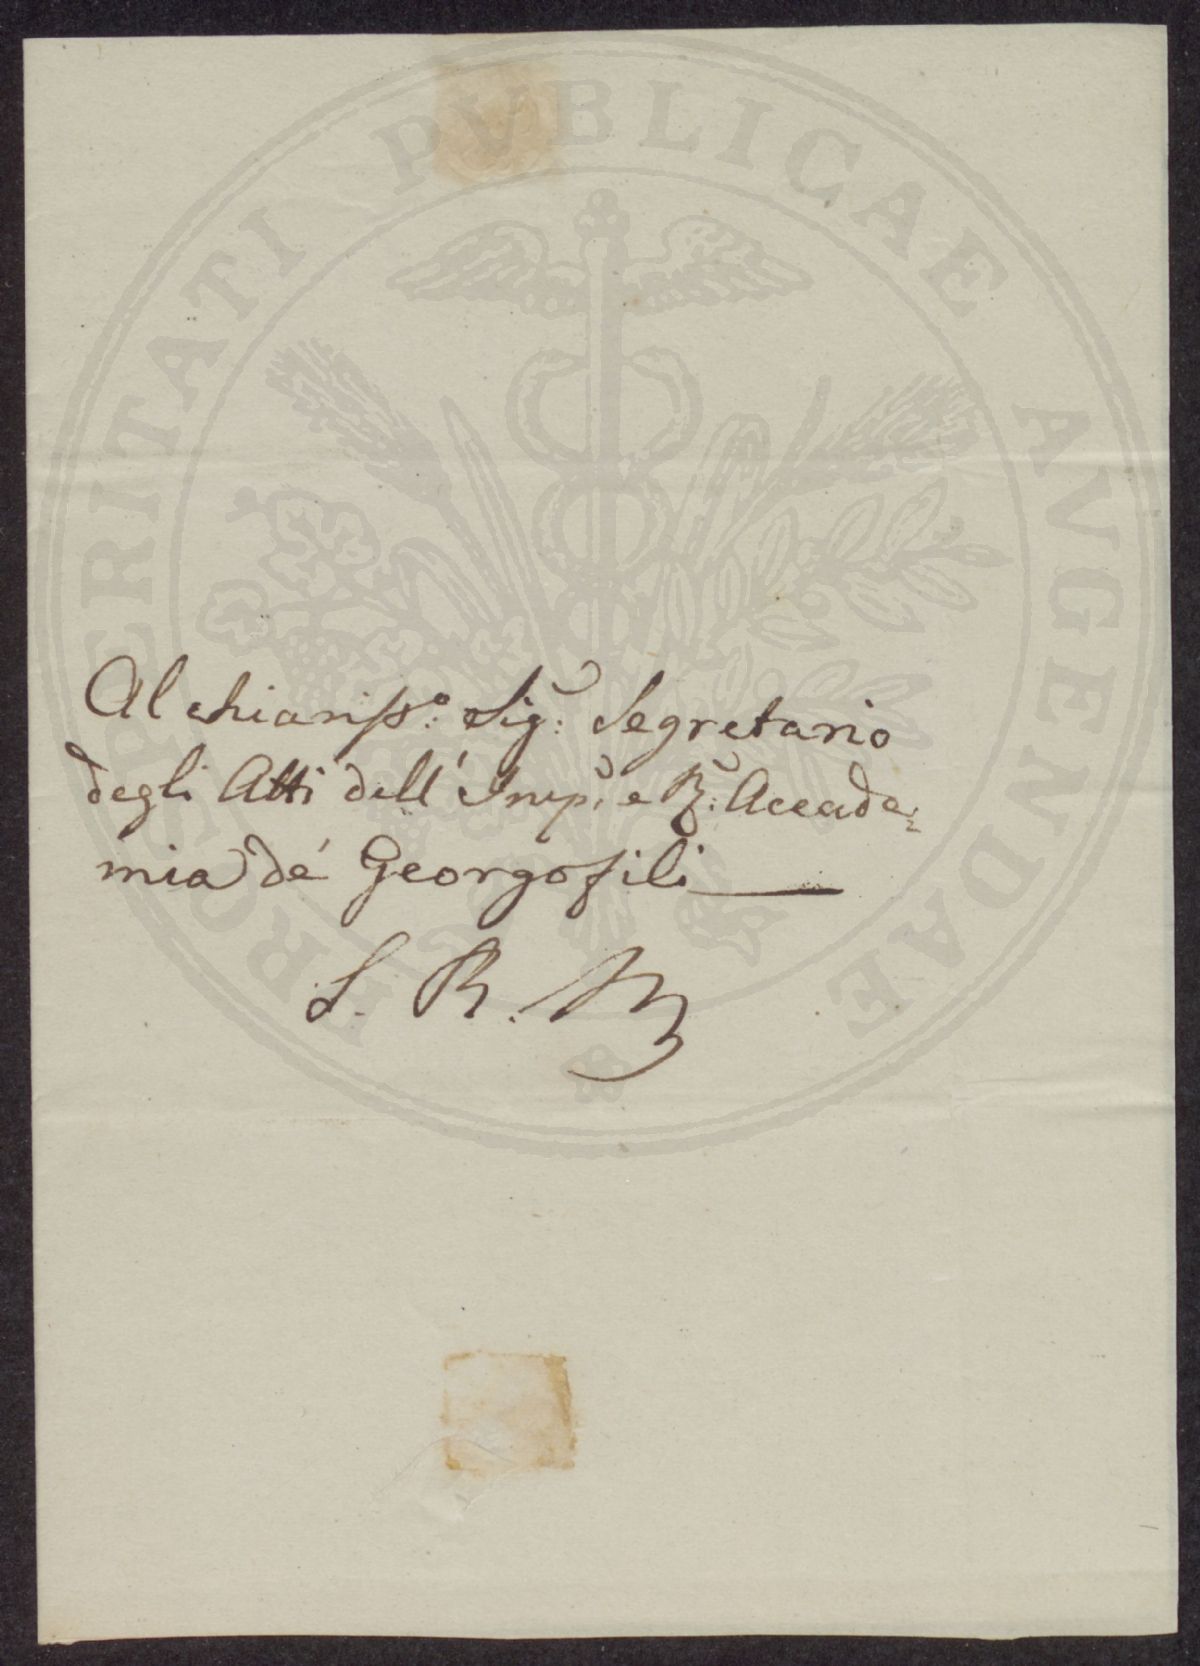 PROSPERITATI PVBLICAE AVGENDAE
Al chiariss.º Sig.r Segretario
degli Atti dell' Imp. e R. Accade=
mia de' Georgofili
S. R. M.